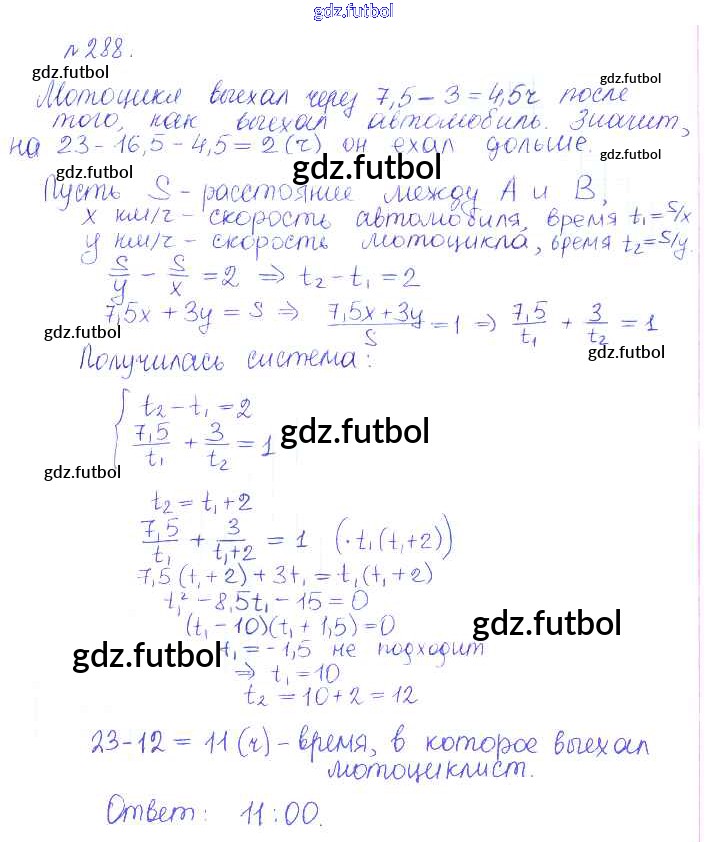 gdz.futbol
№ 288.
gdz.futbol
gdz.futbol
Мотоцикл выехал через 7,5 − 3 = 4,5ч после
того, как выехал автомобиль. Значит,
на 23 − 16,5 − 4,5 = 2 (ч) он ехал дольше.
gdz.futbol
gdz.futbol
Пусть S − расстояние между А и В,
x км/ч − скорость автомобиля, время t₁ = S/x
y км/ч − скорость мотоцикла, время t₂ = S/y.
gdz.futbol
S/y − S/x = 2 ⇒ t₂ − t₁ = 2
7,5x + 3y = S ⇒ (7,5x + 3y)/S = 1 ⇒ 7,5/t₁ + 3/t₂ = 1
gdz.futbol
gdz.futbol
Получилась система:
{ t₂ − t₁ = 2
7,5/t₁ + 3/t₂ = 1
gdz.futbol
gdz.futbol
t₂ = t₁ + 2
7,5/t₁ + 3/(t₁+2) = 1 (· t₁(t₁+2))
7,5(t₁+2) + 3t₁ = t₁(t₁+2)
t₁² − 8,5t₁ − 15 = 0
(t₁ − 10)(t₁ + 1,5) = 0
gdz.futbol
t₁ = −1,5 не подходит
gdz.futbol
⇒ t₁ = 10
t₂ = 10 + 2 = 12
23 − 12 = 11 (ч) − время, в которое выехал
мотоциклист.
Ответ: 11:00.